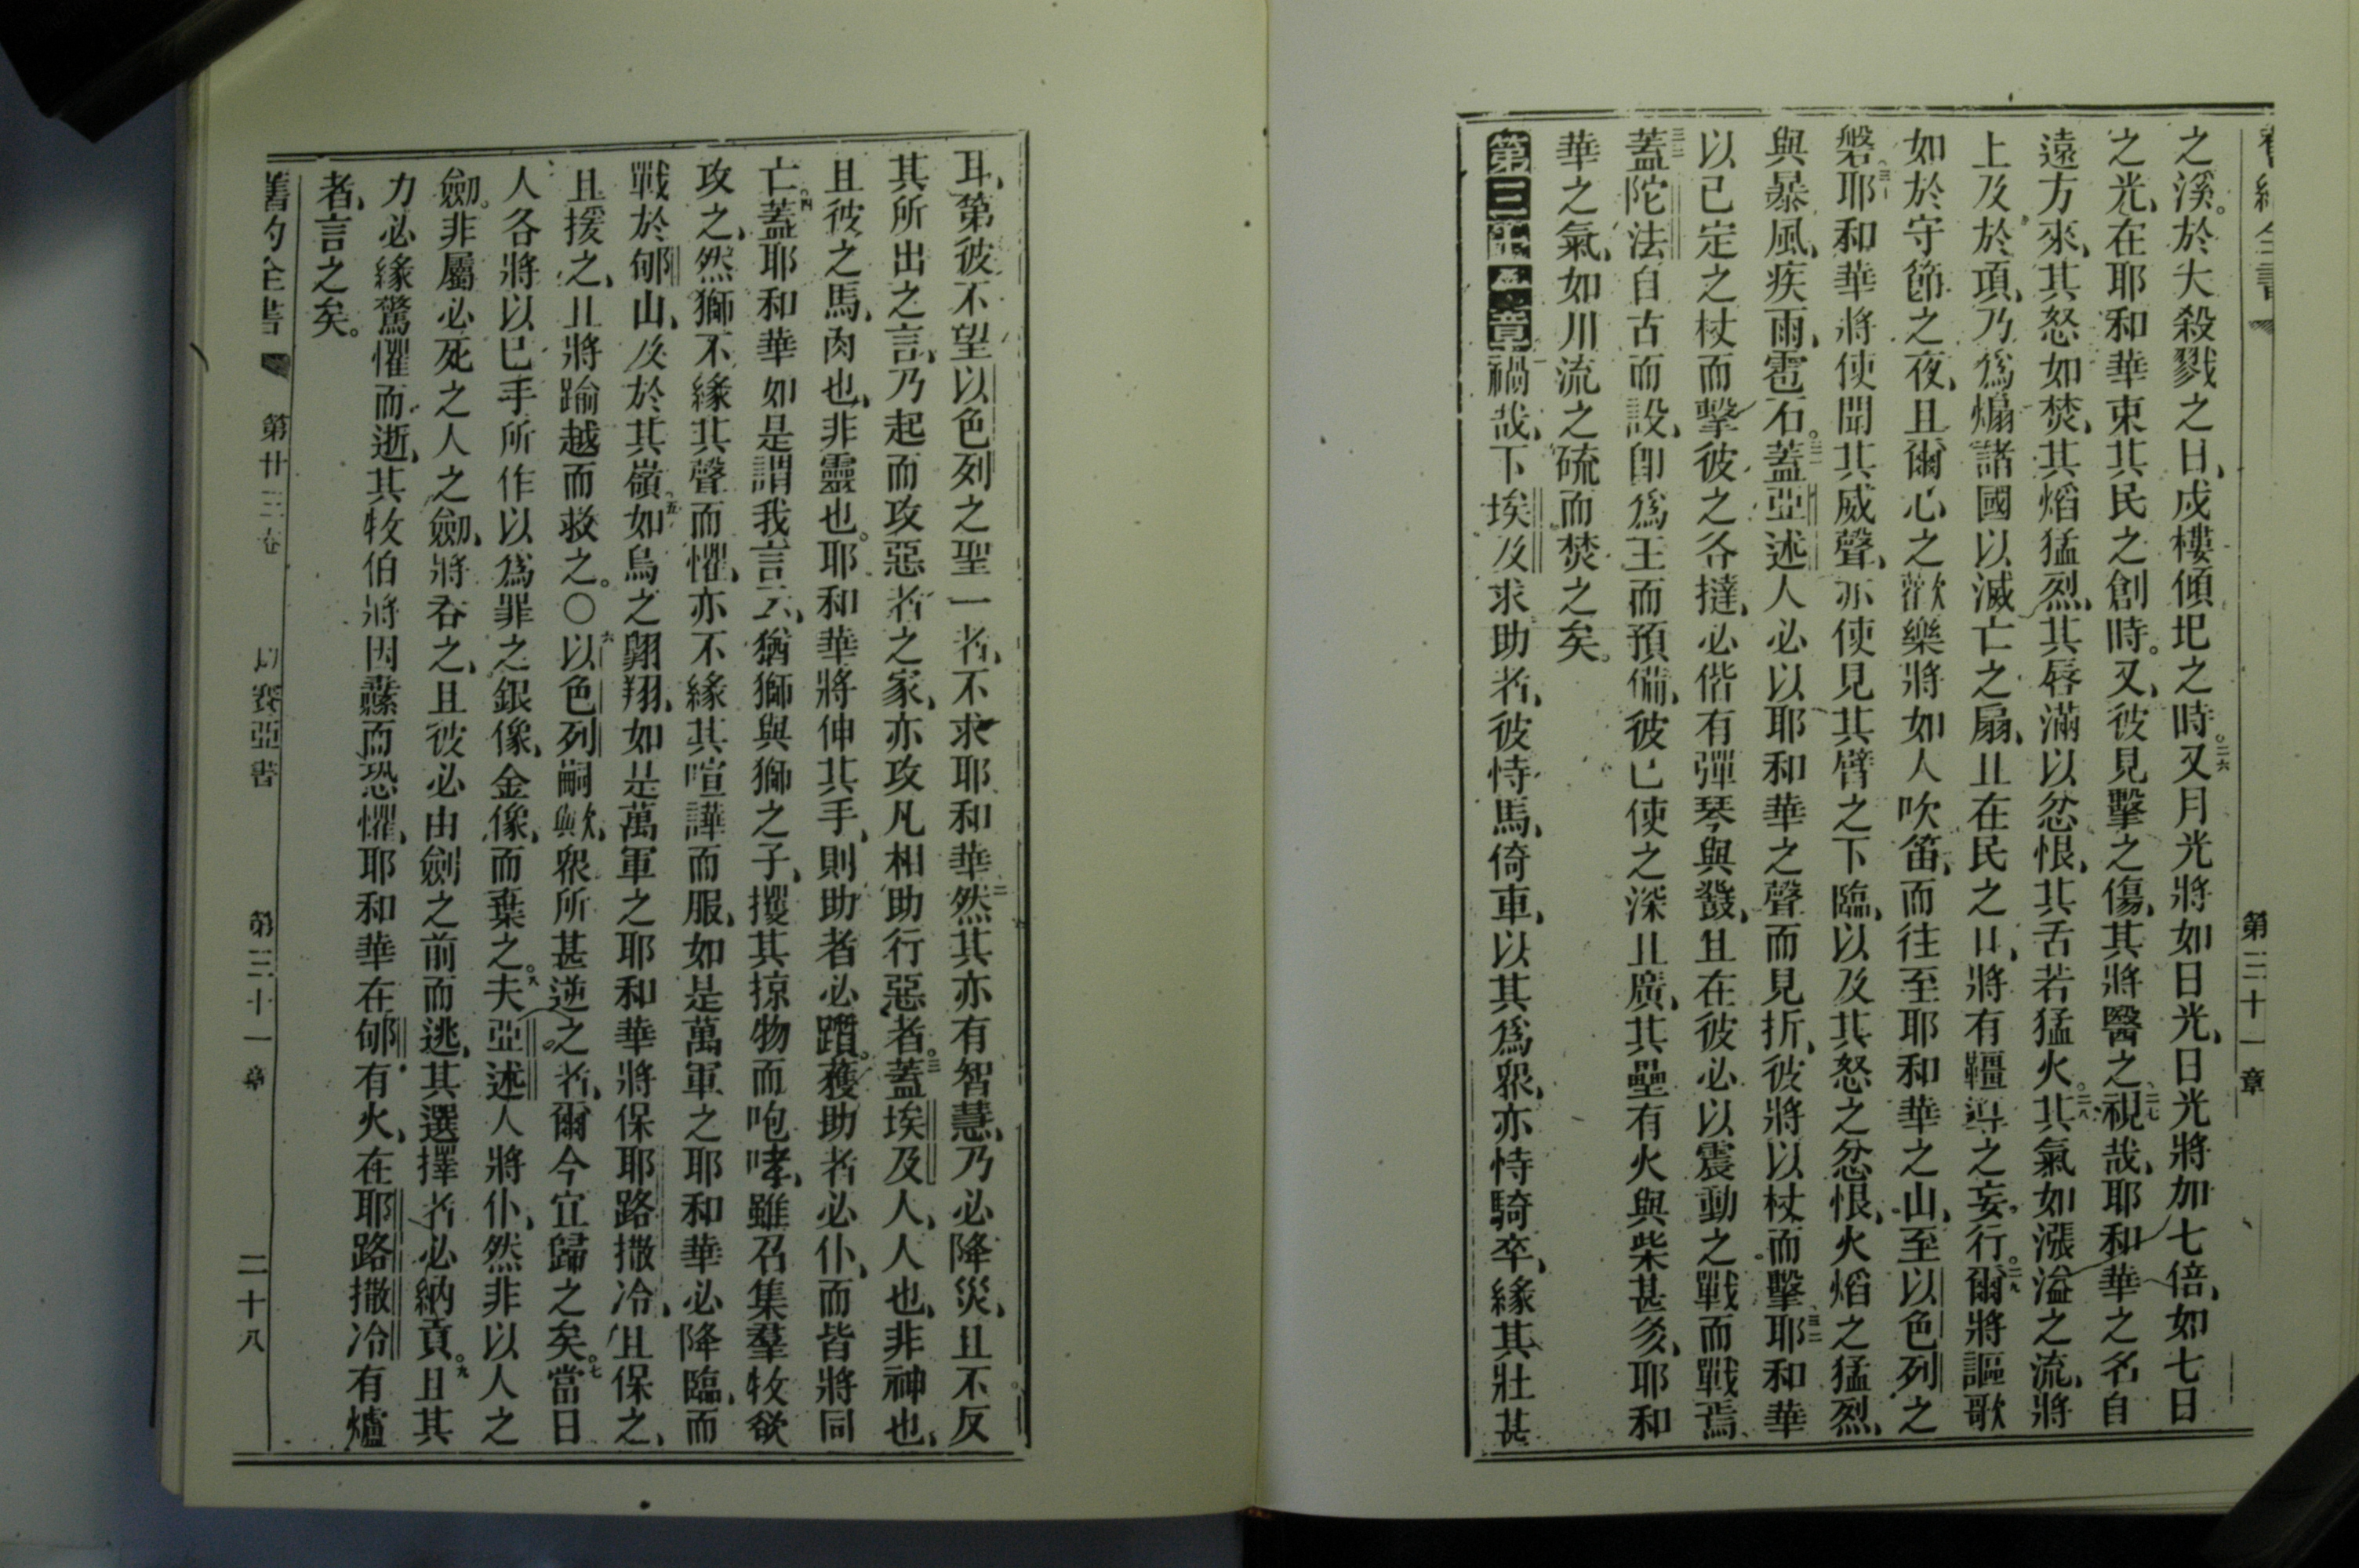 第三十一章
之溪。於大殺戮之日、戍樓傾圯之時。二六又月光將如日光、日光將加七倍、如七日
之光、在耶和華束其民之創時。又、彼見擊之傷、其將醫之、二七視哉、耶和華之名自
遠方來、其怒如焚、其熖猛烈、其唇滿以忿恨、其舌若猛火。二八其氣如漲溢之流、將
上及於項、乃爲煽諸國以滅亡之扇、且在民之口、將有韁導之妄行。二九爾將謳歌
如於守節之夜、且爾心之歡樂將如人吹笛、而往至耶和華之山、至以色列之
磐。三十耶和華將使聞其威聲、亦使見其臂之下臨、以及其怒之忿恨、火熖之猛烈、
與暴風、疾雨、雹石。三一蓋亞述人必以耶和華之聲而見折、彼將以杖而擊、三二耶和華
以已定之杖而擊彼之各撻、必偕有彈琴與鼗、且在彼必以震動之戰而戰焉、
三三蓋陀法自古而設、卽爲王而預備、彼已使之深且廣、其壘有火與柴甚多、耶和
華之氣、如川流之硫而焚之矣。
第三十一章 禍哉、下埃及求助者、彼恃馬、倚車、以其爲衆、亦恃騎卒、緣其壯甚
耳、第彼不望以色列之聖一者、不求耶和華二然其亦有智慧、乃必降災、且不反
其所出之言、乃起而攻惡者之家、亦攻凡相助行惡者。三蓋埃及人、人也、非神也、
且彼之馬、肉也、非靈也。耶和華將伸其手、則助者必躓、獲助者必仆、而皆將同
亡。四蓋耶和華如是謂我言云、猶獅與獅之子、攫其掠物而咆哮、雖召集羣牧欲
攻之、然獅不緣其聲而懼、亦不緣其喧譁而服、如是萬軍之耶和華必降臨、而
戰於郇山、及於其嶺、五如鳥之翺翔、如是萬軍之耶和華將保耶路撒冷、且保之、
且援之、且將踰越而救之。〇六以色列嗣歟、衆所甚逆之者、爾今宜歸之矣。七當日
人各將以己手所作以爲罪之銀像、金像、而棄之。八夫亞述人將仆、然非以人之
劒。非屬必死之人之劒、將吞之、且彼必由劍之前而逃、其選擇者必納貢。九且其
力必緣驚懼而逝、其牧伯將因纛而恐懼、耶和華在郇有火、在耶路撒冷有爐
者、言之矣。
舊約全書 第廿三卷 以賽亞書 第三十一章 二十八